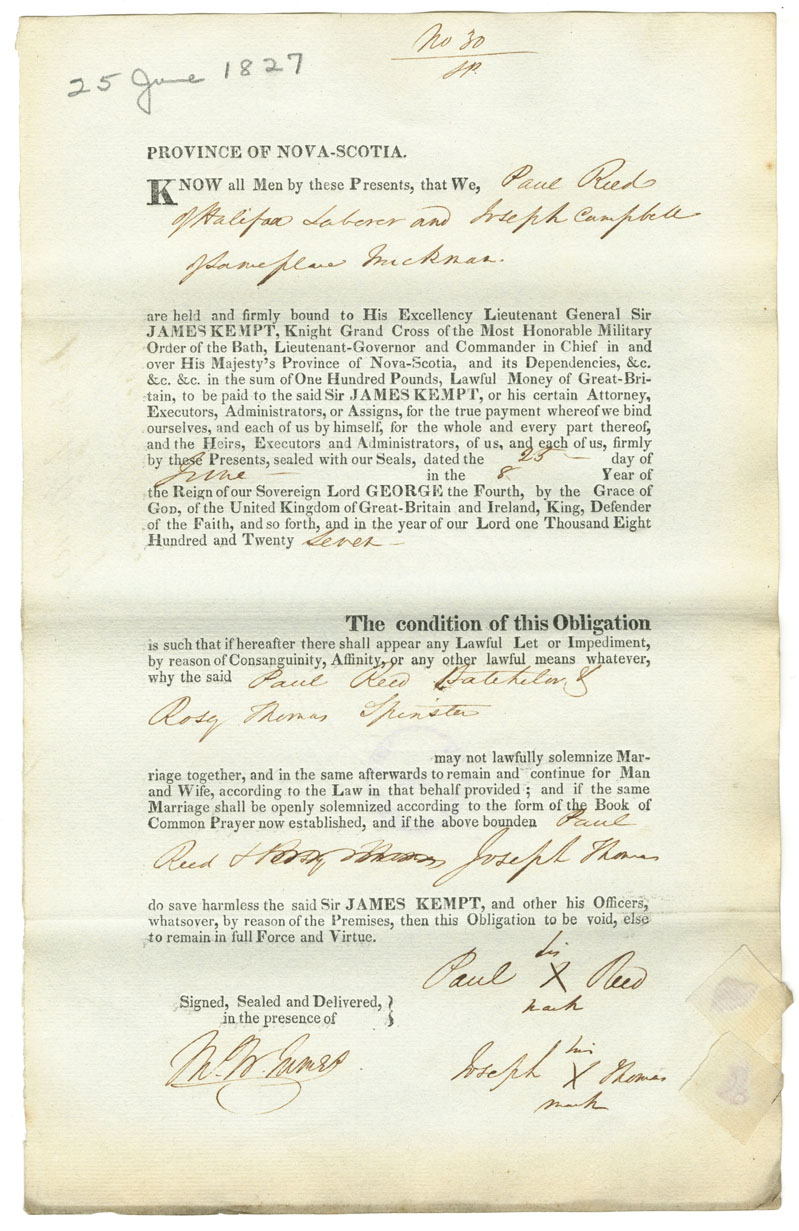 No 30
25 June 1827
PROVINCE OF NOVA-SCOTIA.
KNOW all Men by these Presents, that We, Paul Reed
of Halifax Laborer and Joseph Campbell
of same place
are held and firmly bound to His Excellency Lieutenant General Sir
JAMES KEMPT, Knight Grand Cross of the Most Honorable Military
Order of the Bath, Lieutenant-Governor and Commander in Chief in and
over His Majesty's Province of Nova-Scotia, and its Dependencies, &c.
&c. &c. in the sum of One Hundred Pounds, Lawful Money of Great-Bri-
tain, to be paid to the said Sir JAMES KEMPT, or his certain Attorney,
Executors, Administrators, or Assigns, for the true payment whereof we bind
ourselves, and each of us by himself, for the whole and every part thereof,
and the Heirs, Executors and Administrators, of us, and each of us, firmly
by these Presents, sealed with our Seals, dated the 25 day of
June in the 8 Year of
the Reign of our Sovereign Lord GEORGE the Fourth, by the Grace of
GOD, of the United Kingdom of Great-Britain and Ireland, King, Defender
of the Faith, and so forth, and in the year of our Lord one Thousand Eight
Hundred and Twenty Seven
The condition of this Obligation
is such that if hereafter there shall appear any Lawful Let or Impediment,
by reason of Consanguinity, Affinity, or any other lawful means whatever,
why the said Paul Reed Batchelor &
Rosy Thomas Spinster
may not lawfully solemnize Mar-
riage together, and in the same afterwards to remain and continue for Man
and Wife, according to the Law in that behalf provided ; and if the same
Marriage shall be openly solemnized according to the form of the Book of
Common Prayer now established, and if the above bounden Paul
Reed & Rosy Thomas Joseph Thomas
do save harmless the said Sir JAMES KEMPT, and other his Officers,
whatsover, by reason of the Premises, then this Obligation to be void, else
to remain in full Force and Virtue.
Paul his X mark Reed
Signed, Sealed and Delivered,
in the presence of
Joseph his X mark Thomas